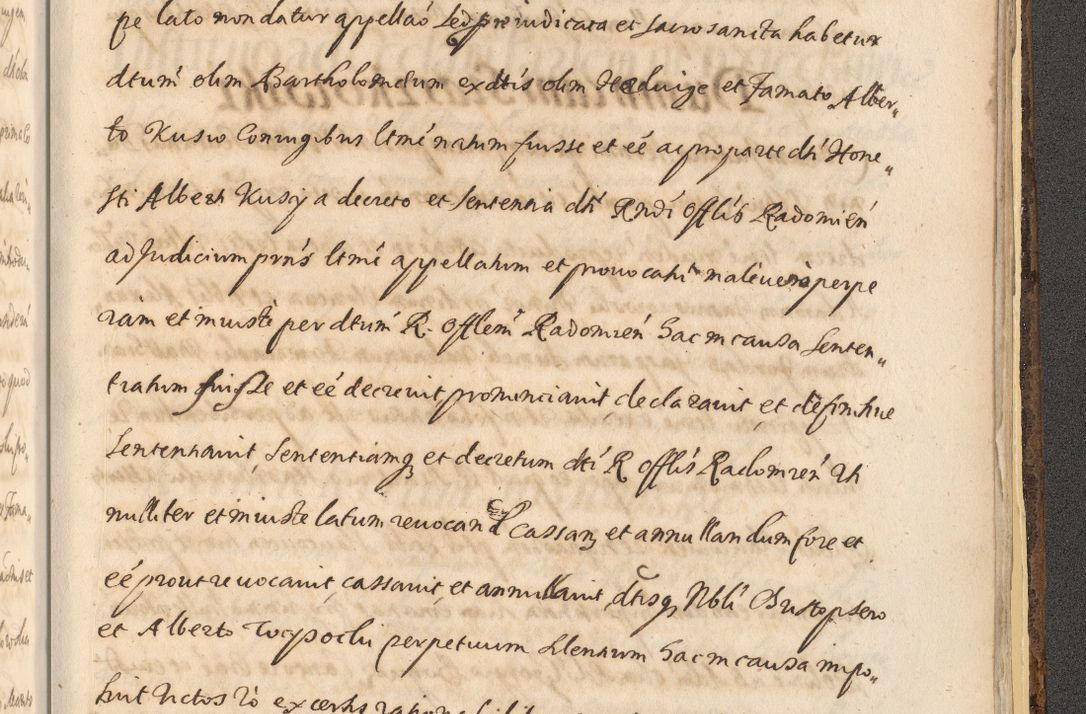 pe lato non datur appellaõ sed pro iudicata et sacrosancta habetur
dtum̃ olim Bartholomæum ex dtis olim Hedvige et Famato Alber„
to Kusio Coniugibus ltmẽ natum fuisse et eẽ ac pro parte dti Hone„
sti Alberti Kusij a decreto et sententia dti Rndi Offlis Radomien̄
ad Judicium prns ltmẽ appellatum et provocatũ male vero perpe
ram et iniuste per dtum̃ R. Offlem̃ Radomien̄ hac in causa senten„
tiatum fuisse et eẽ decrevit pronunciavit, declaravit, et definitive
sententiavit, sententiamq et decretum dti R Offlis Radomien̄ uti
nulliter et iniuste latum revocand cassan et annullandum fore et
eẽ prout revocavit, cassavit, et annullavit, dtisq Nbli Christophero
et Alberto perpetuum silentium hac in causa impo„
suit